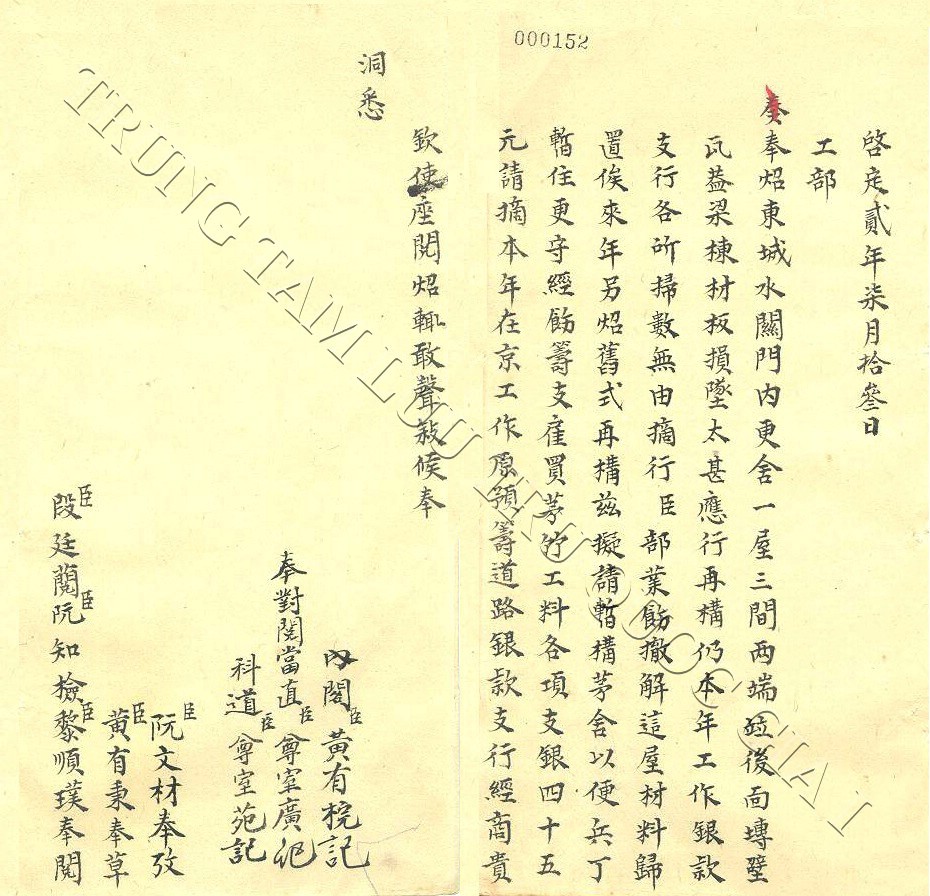 000152
啓定貳年柒月拾叄日
工部
奏奉炤東城水關門内更舍一屋三間两端並後面塼壁
瓦葢梁棟材板損墜太甚應行再構仍本年工作銀款
支行各所掃數無由摘行臣部業飭撤解這屋材料歸
置俟來年另炤舊式再構兹擬請暫構茅舍以便兵丁
暫住更守經飭籌支雇買茅竹工料各項支銀四十五
元請摘本年在京工作原預籌道路銀款支行經商貴
欽使座閱炤輙敢聲敍候奉
洞悉
内閣臣黃有梡記
奉對閱當直臣尊室廣記
科道臣尊室苑記
臣阮文材奉攷
臣黃有秉奉草
臣段廷臣阮知檢臣黎順璞奉閱
TRUNG TAM LUU TRU QUOC GIA I